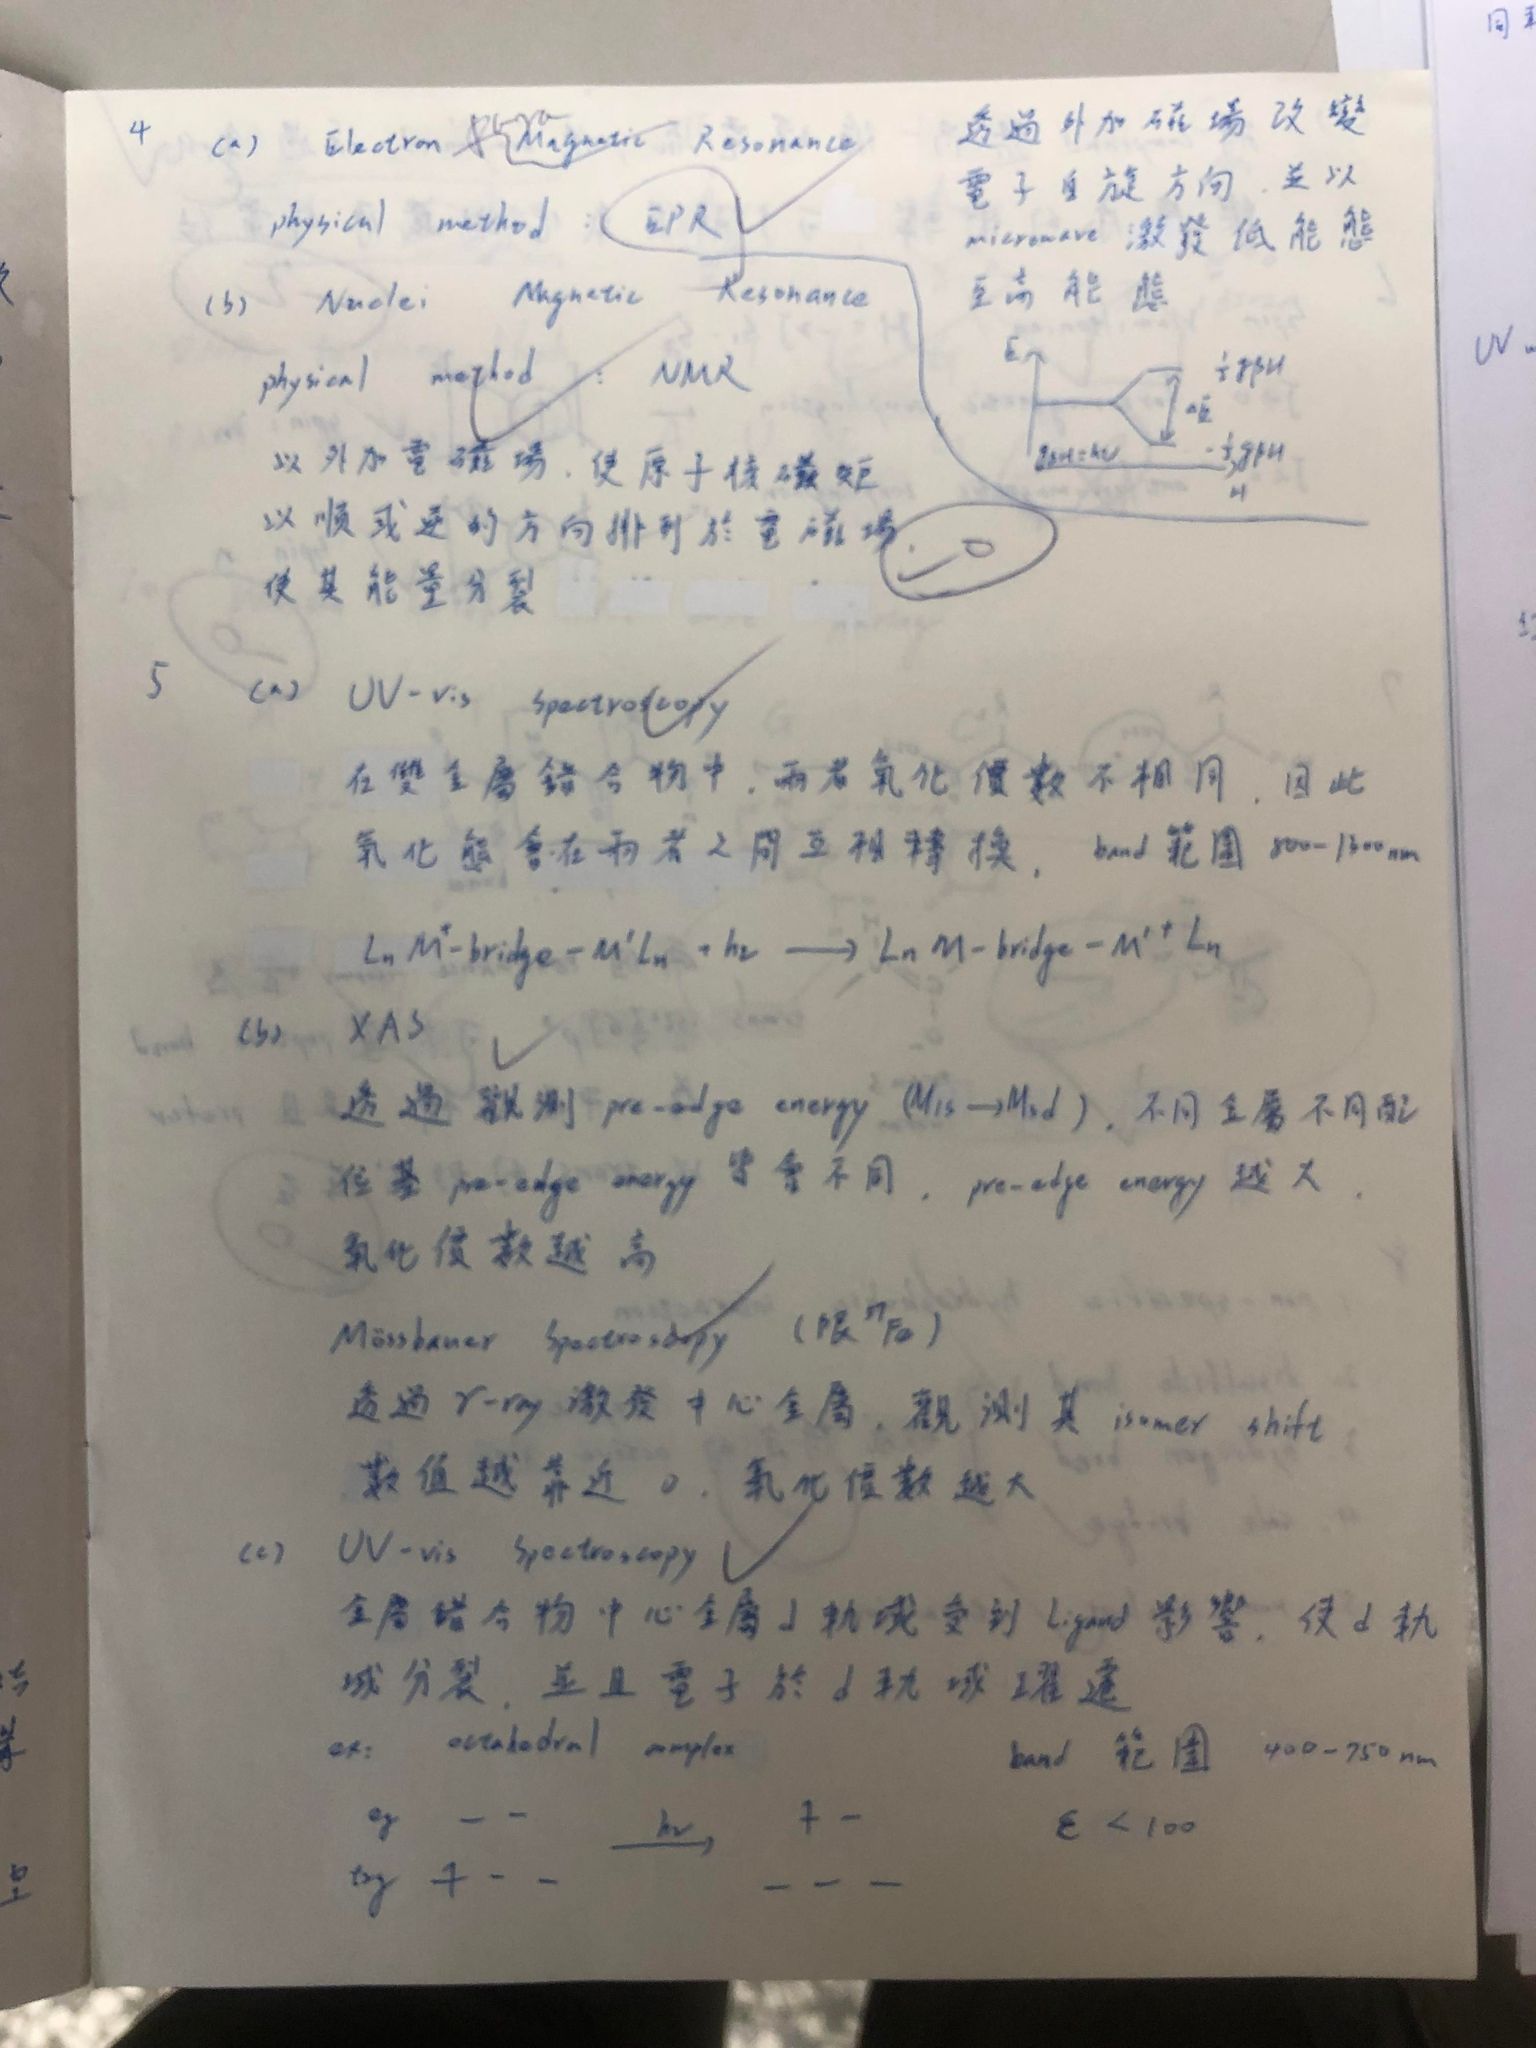 4 (a) Electron Magnetic Resonance
physical method : EPR
透過外加磁場改變
電子自旋方向，並以
microwave 激發低能態
至高能態
E
½gβH
ΔE
-½gβH
gβH=hν
H
(b) Nuclei Magnetic Resonance
physical method : NMR
以外加電磁場，使原子核磁矩
以順或逆的方向排列於電磁場
使其能量分裂
10
5 (a) UV-vis spectroscopy
在雙金屬錯合物中，兩者氧化價數不相同，因此
氧化態會在兩者之間互相轉換， band 範圍 800-1300nm
LnM⁺-bridge-M'Ln + hν → LnM-bridge-M'⁺Ln
(b) XAS
透過觀測 pre-edge energy (M1s→M3d)，不同金屬不同配
位基 pre-edge energy 皆會不同， pre-edge energy 越大，
氧化價數越高
Mössbauer Spectroscopy (限⁵⁷Fe)
透過 γ-ray 激發中心金屬，觀測其 isomer shift
數值越靠近 0，氧化價數越大
(c) UV-vis Spectroscopy
金屬錯合物中心金屬d軌域受到 Ligand 影響，使d軌
域分裂，並且電子於d軌域躍遷
ex: octahedral complex band 範圍 400-750nm
eg hν ε < 100
t2g